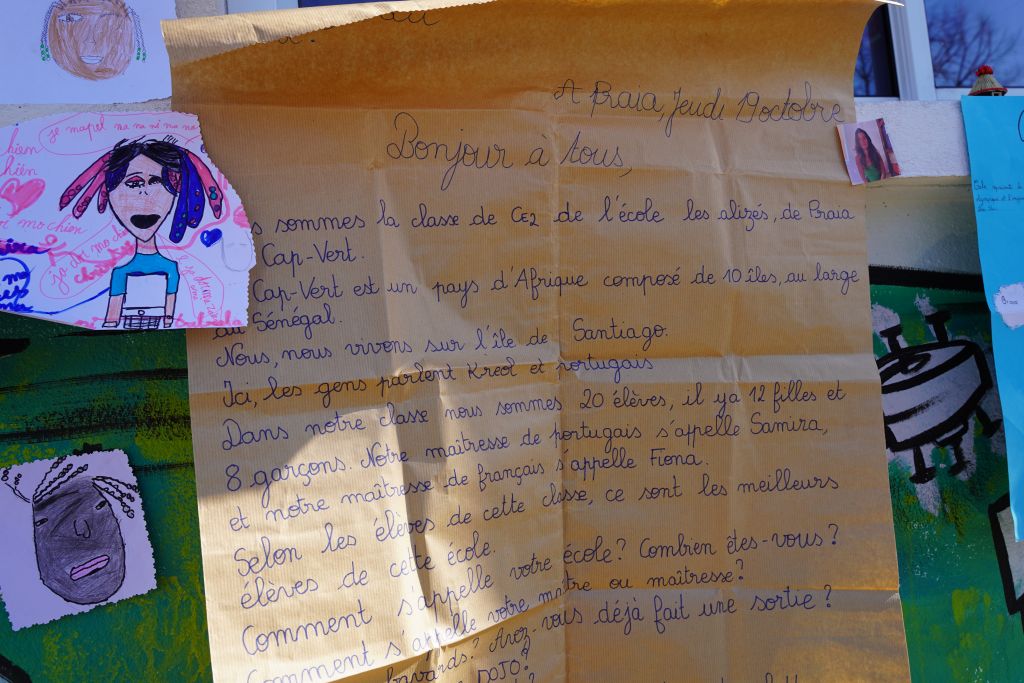 A Praia, Jeudi 19 octobre
Bonjour à tous,
s sommes la classe de CE2 de l'école les alizés, de Praia
Cap-Vert.
Cap-Vert est un pays d'Afrique composé de 10 îles, au large
du Sénégal.
Nous, nous vivons sur l'île de Santiago.
Ici, les gens parlent Kreol et portugais
Dans notre classe nous sommes 20 élèves, il ya 12 filles et
8 garçons. Notre maîtresse de portugais s'appelle Samira,
et notre maîtresse de français s'appelle Fiona.
Selon les élèves de cette classe, ce sont les meilleurs
élèves de cette école.
Comment s'appelle votre école? Combien êtes-vous?
Comment s'appelle votre maître ou maîtresse?
bavards? Avez-vous déjà fait une sortie?
DOJO?
je mapel na na ni na no
chien
hien
mo chien